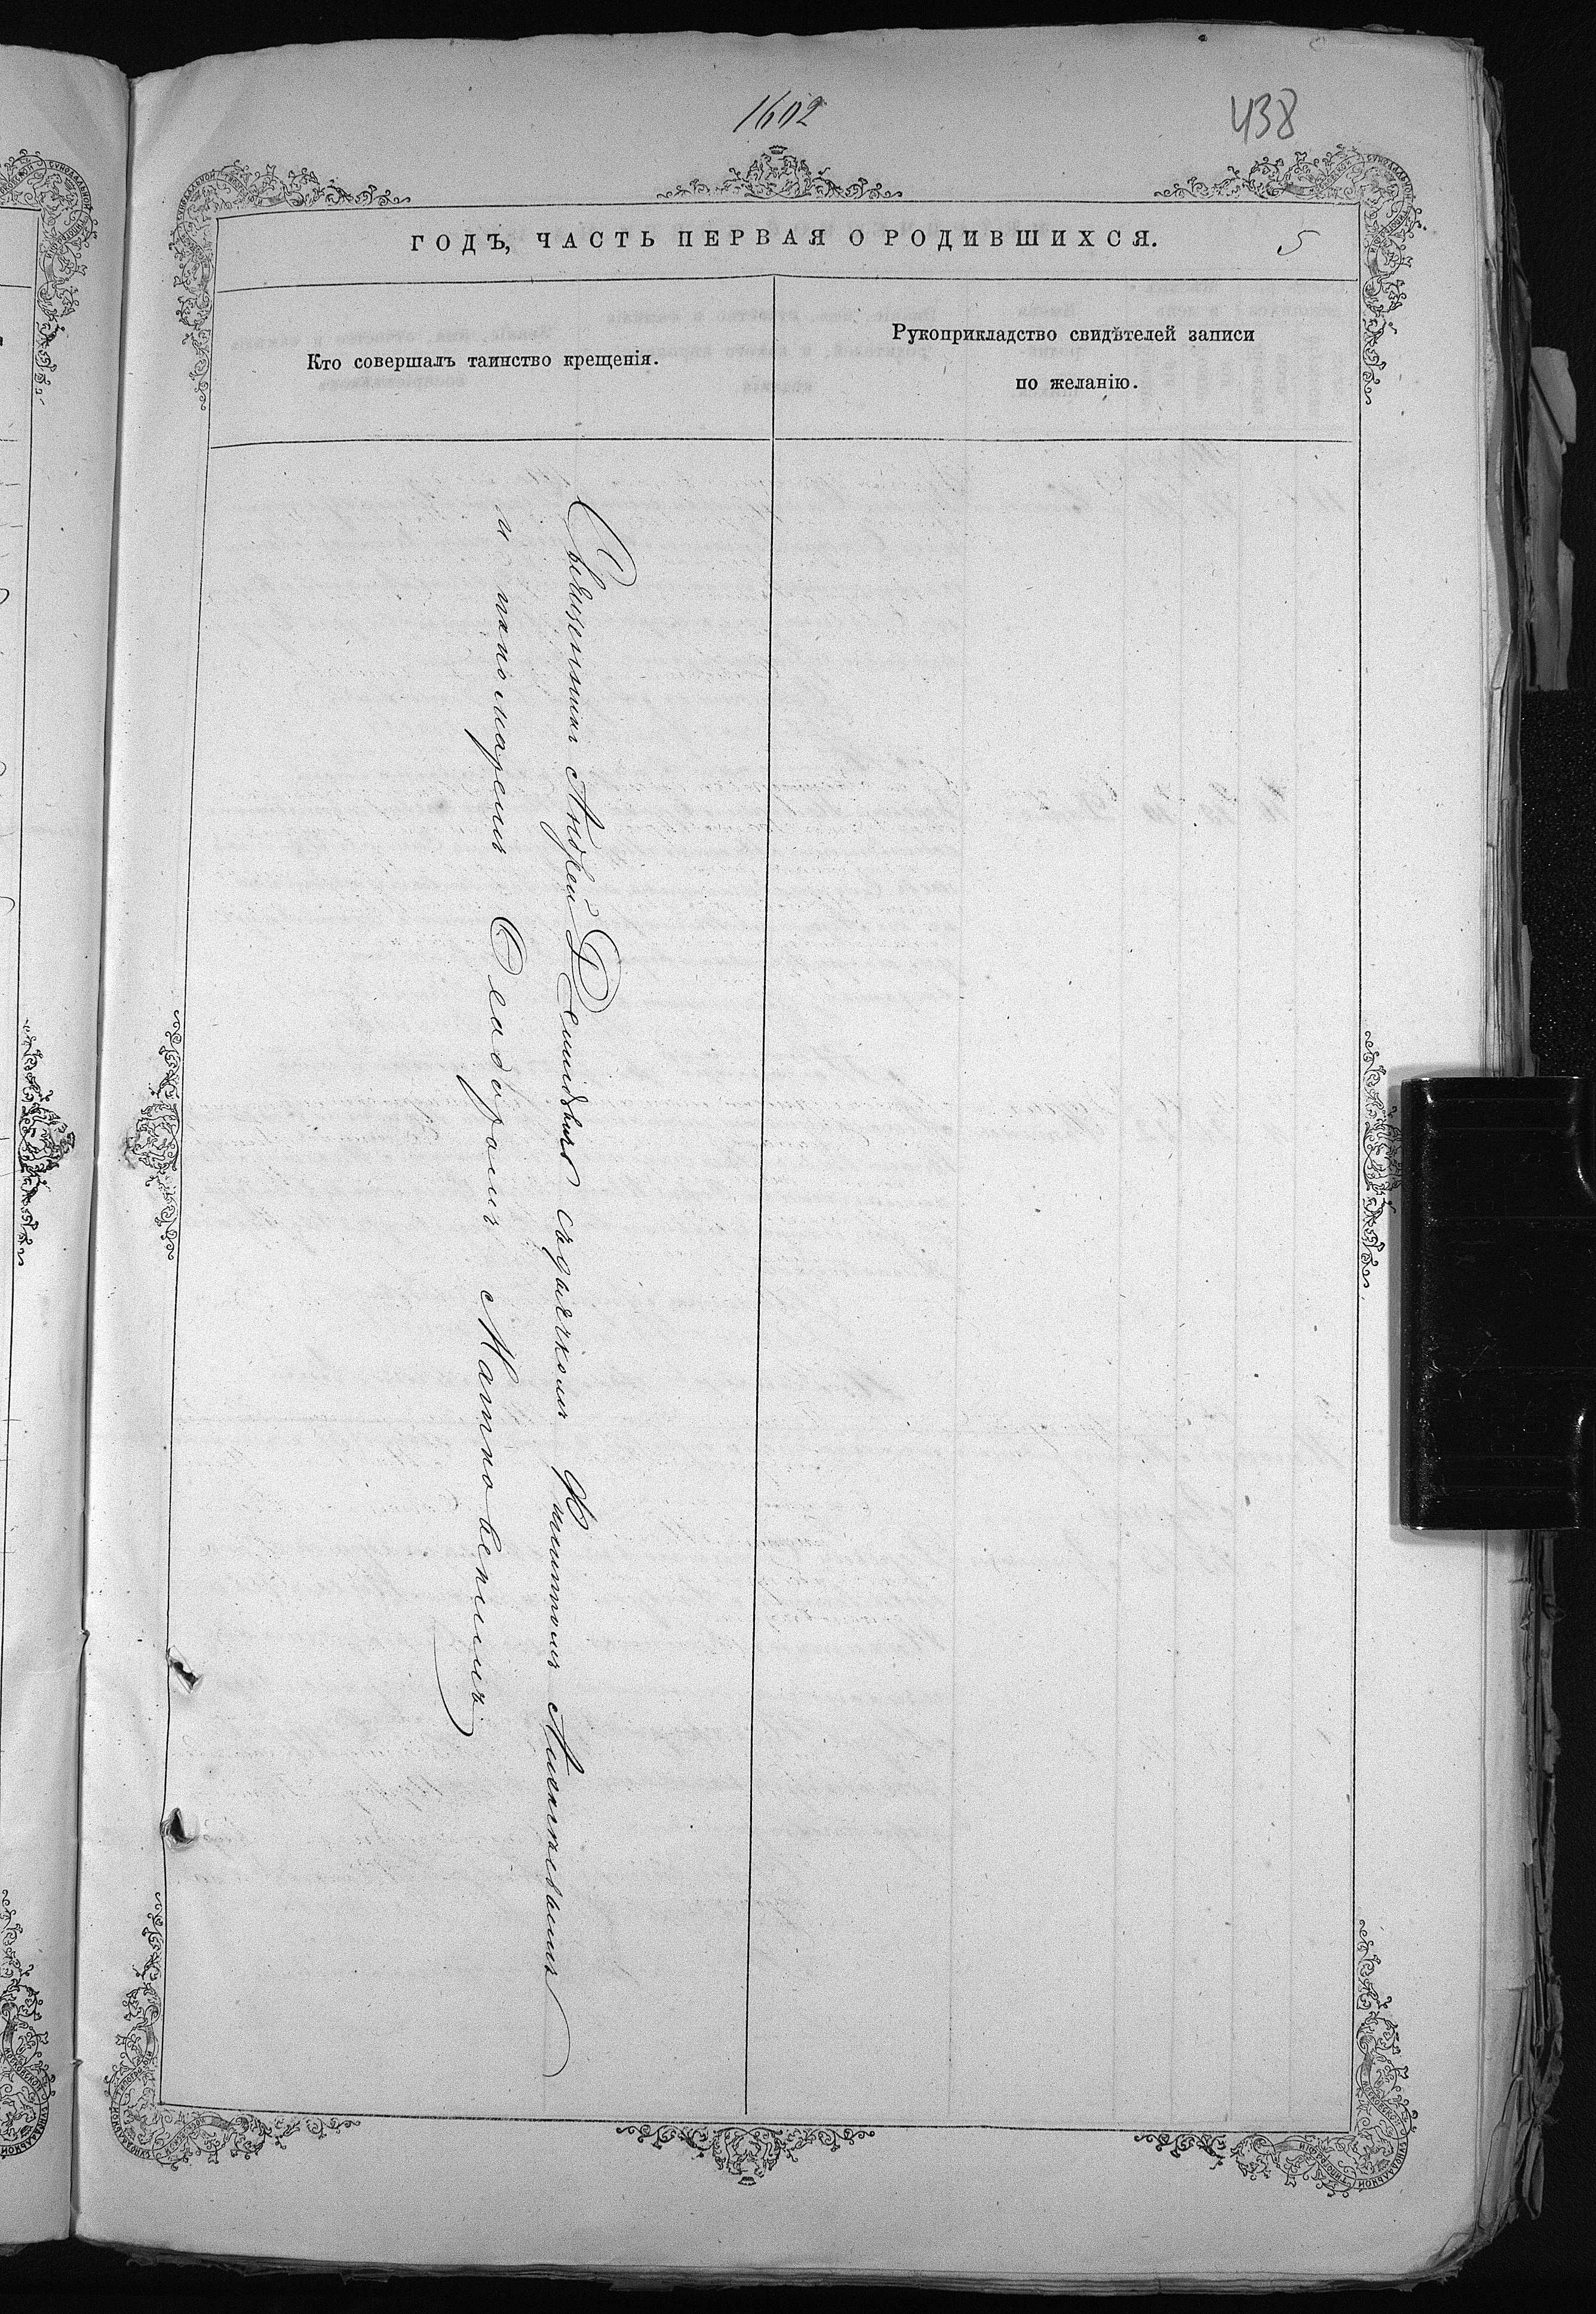 1602
438
ГОДЪ, ЧАСТЬ ПЕРВАЯ О РОДИВШИХСЯ.
5
Кто совершалъ таинство крещенія.
Рукоприкладство свидѣтелей записи
по желанію.
Священникъ Андрей Демидовъ съ дьячкомъ Филиппомъ
и пономаремъ Ѳеадоромъ